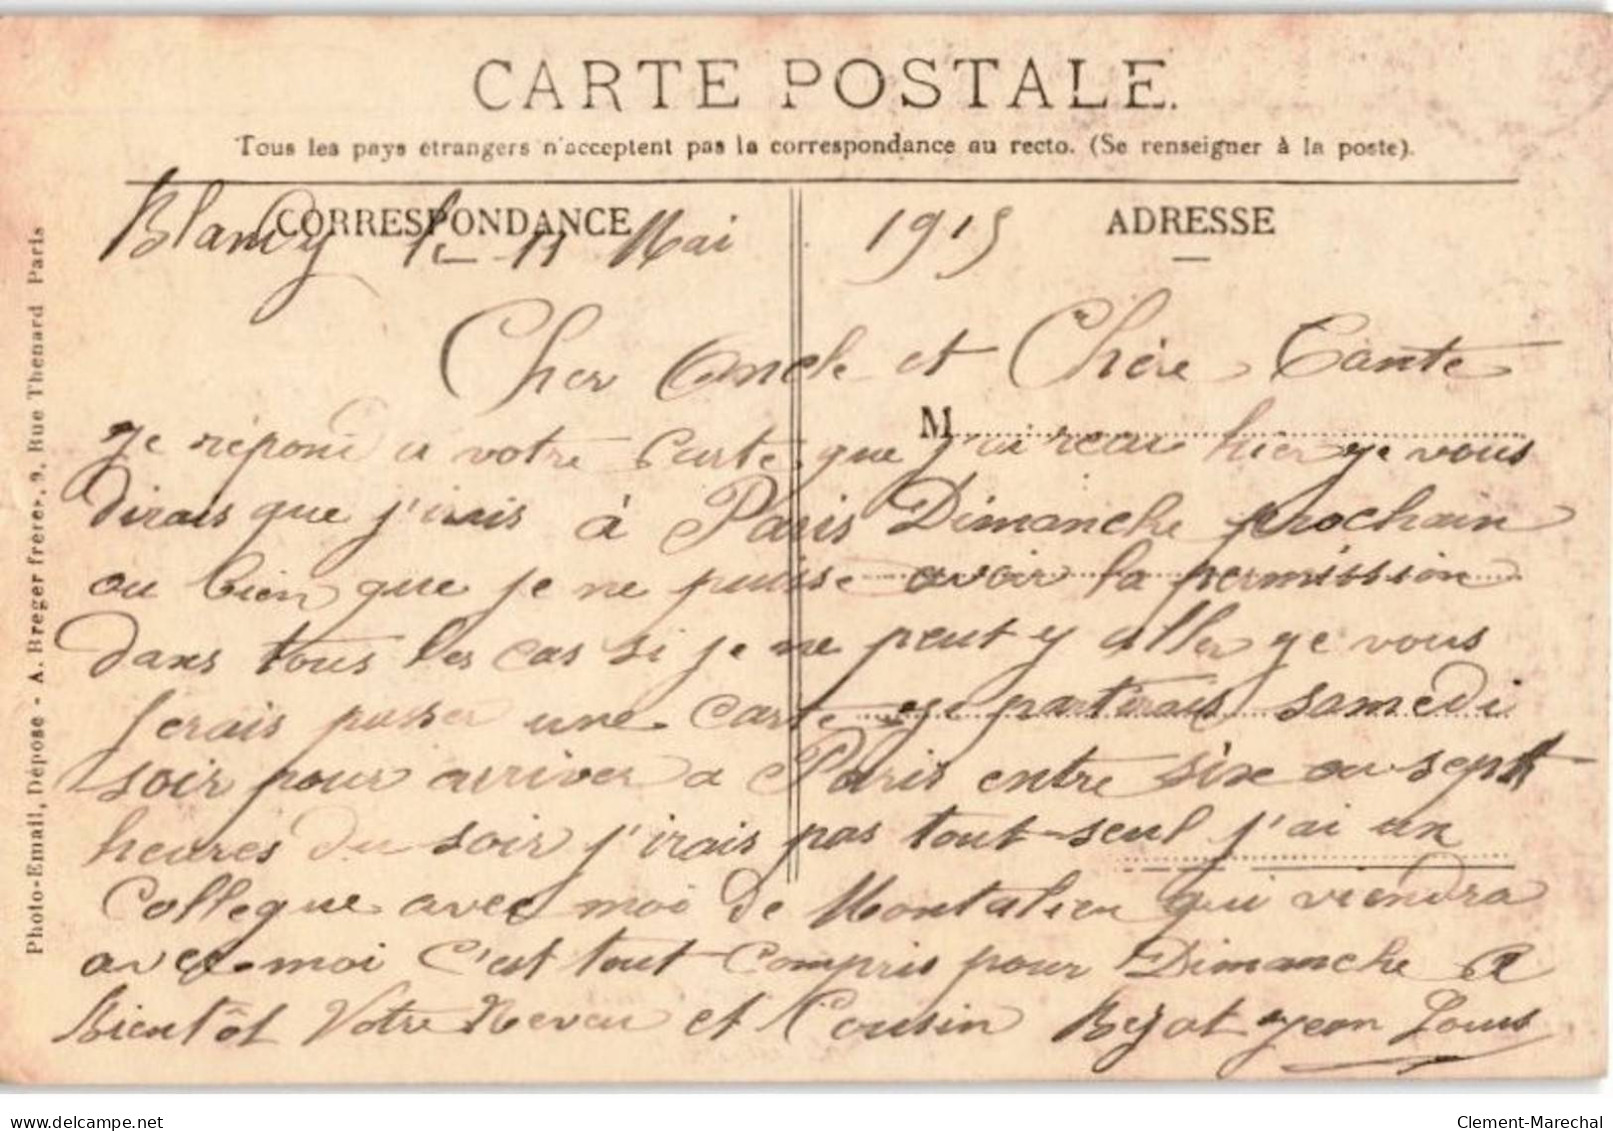 CARTE POSTALE.
Tous les pays étrangers n'acceptent pas la correspondance au recto. (Se renseigner à la poste).
CORRESPONDANCE
ADRESSE
Blandy le 11 Mai 1915
Cher Oncle et Chère Tante
M
Je répond a votre Carte que j'ai reçu hier je vous
dirais que j'irais à Paris Dimanche prochain
ou bien que je ne puisse avoir la permission
dans tous les cas si je ne peut y aller je vous
ferais passer une carte je partirais samedi
soir pour arriver a Paris entre six ou sept
heures du soir j'irais pas tout-seul j'ai un
Collegue avec moi de Montalieu qui viendra
avec moi C'est tout compris pour Dimanche a
Bientôt Votre Neveu et Cousin Rejat Jean Louis
Photo-Email, Déposé - A. Breger frères, 9, Rue Thenard Paris
delcampe.net
Clement-Marechal